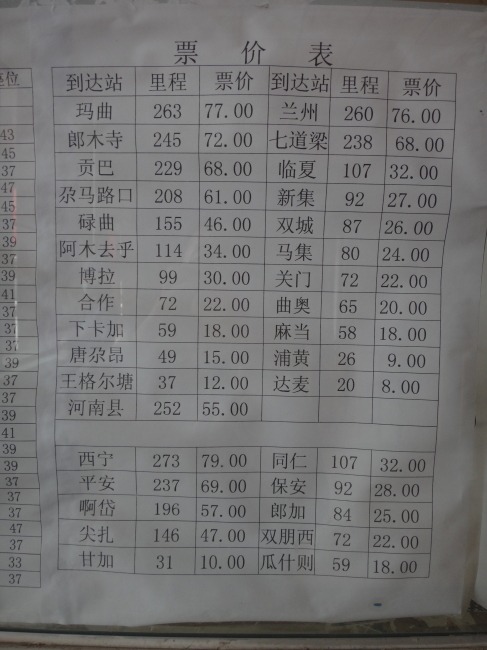 票 价 表
座位 到达站 里程 票价 到达站 里程 票价
玛曲 263 77.00 兰州 260 76.00
43 郎木寺 245 72.00 七道梁 238 68.00
45
37 贡巴 229 68.00 临夏 107 32.00
47 尕马路口 208 61.00 新集 92 27.00
45
37 碌曲 155 46.00 双城 87 26.00
39
37 阿木去乎 114 34.00 马集 80 24.00
39 博拉 99 30.00 关门 72 22.00
41
37 合作 72 22.00 曲奥 65 20.00
37 下卡加 59 18.00 麻当 58 18.00
37
39 唐尕昂 49 15.00 浦黄 26 9.00
37 王格尔塘 37 12.00 达麦 20 8.00
37
39 河南县 252 55.00
41
39
39 西宁 273 79.00 同仁 107 32.00
37 平安 237 69.00 保安 92 28.00
37
37 啊岱 196 57.00 郎加 84 25.00
47 尖扎 146 47.00 双朋西 72 22.00
37
33 甘加 31 10.00 瓜什则 59 18.00
37